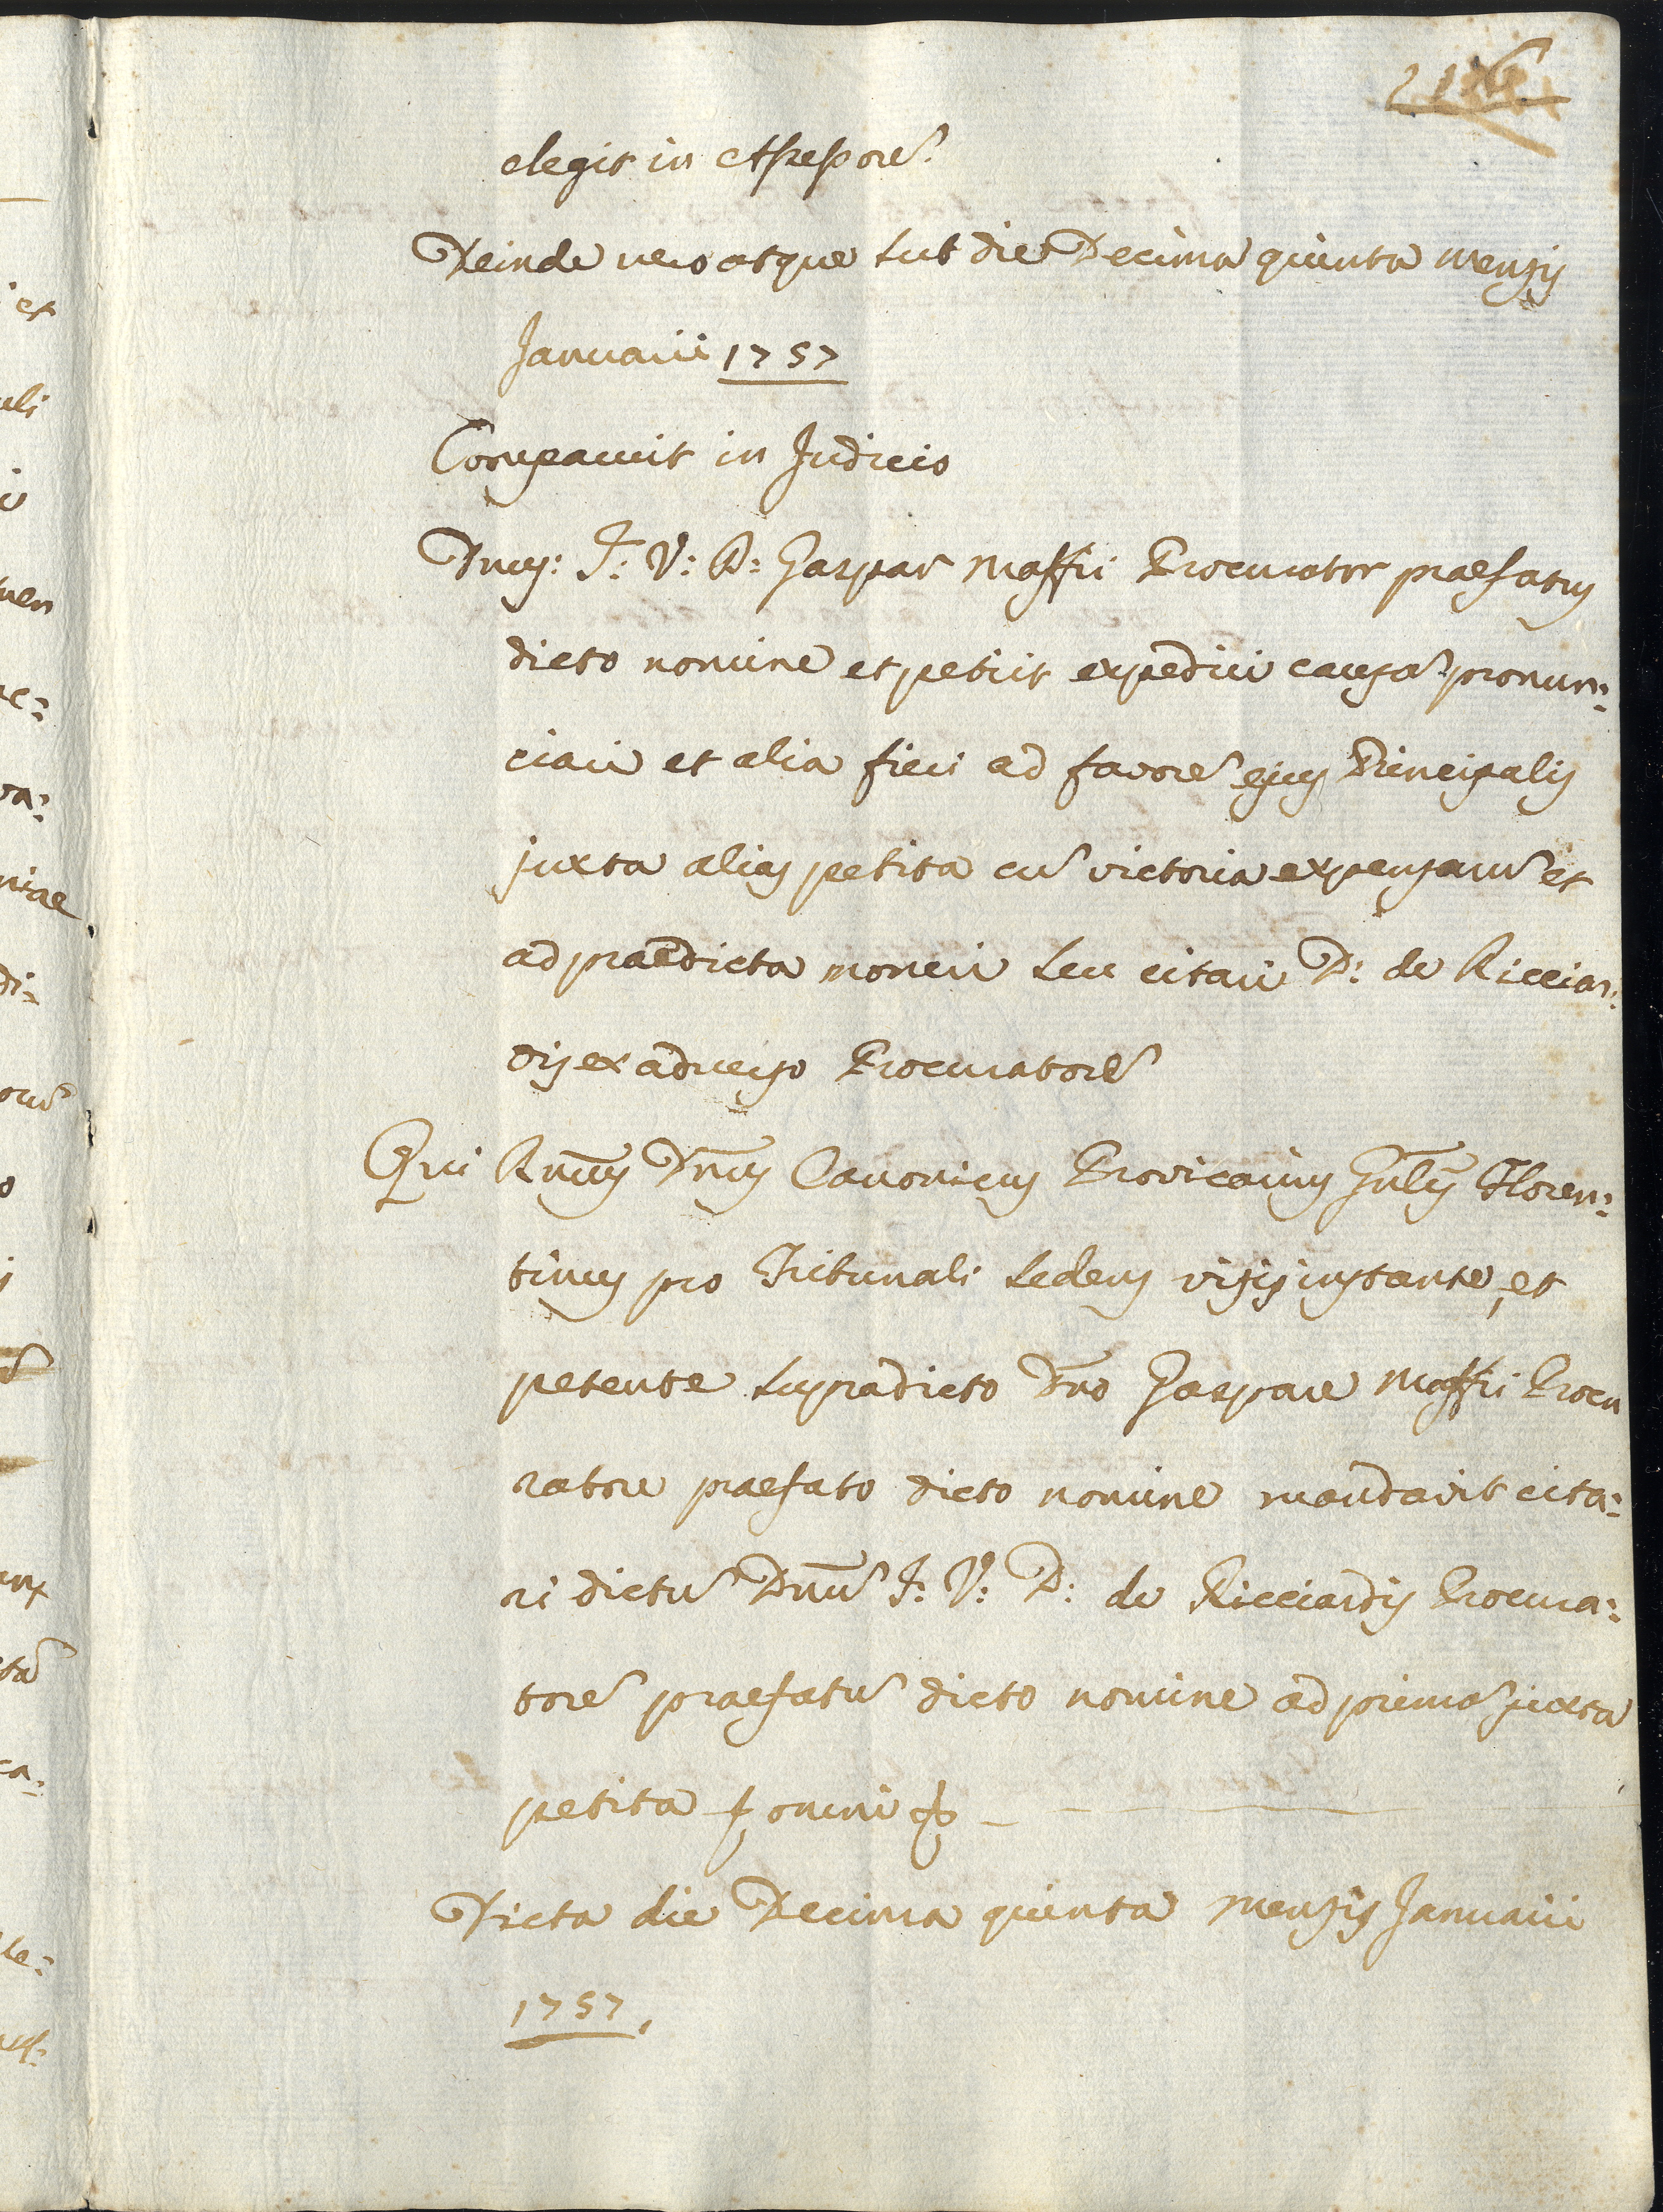 elegit in Assessorẽ.
Deinde vero atque sub die Decima quinta mensis
Januarii 1757
Comparuit in Judicio
Dnus: J: V: D: Gaspar Maffii Procurator praefatus
dicto nomine et petiit expediri causã pronun:
ciari et alia fieri ad favorẽ ejus Principalis
juxta alias petita cũ victoria expensarũ et
ad praedicta moneri seu citari D: de Ricciar:
dis ex adverso Procuratorẽ
Qui Rm̃us Dn̄us Canonicus Provicarius Gñlis Floren:
tinus pro Tribunali sedens visis instante, et
petente supradicto Dño Gaspare Maffii Procu
ratore praefato dicto nomine mandavit cita:
ri dictũ Dnũ J: V: D: de Ricciardis Procura:
torẽ praefatũ dicto nomine ad primã juxta
petita ꝑ omni
Dicta die Decima quinta mensis Januarii
1757,